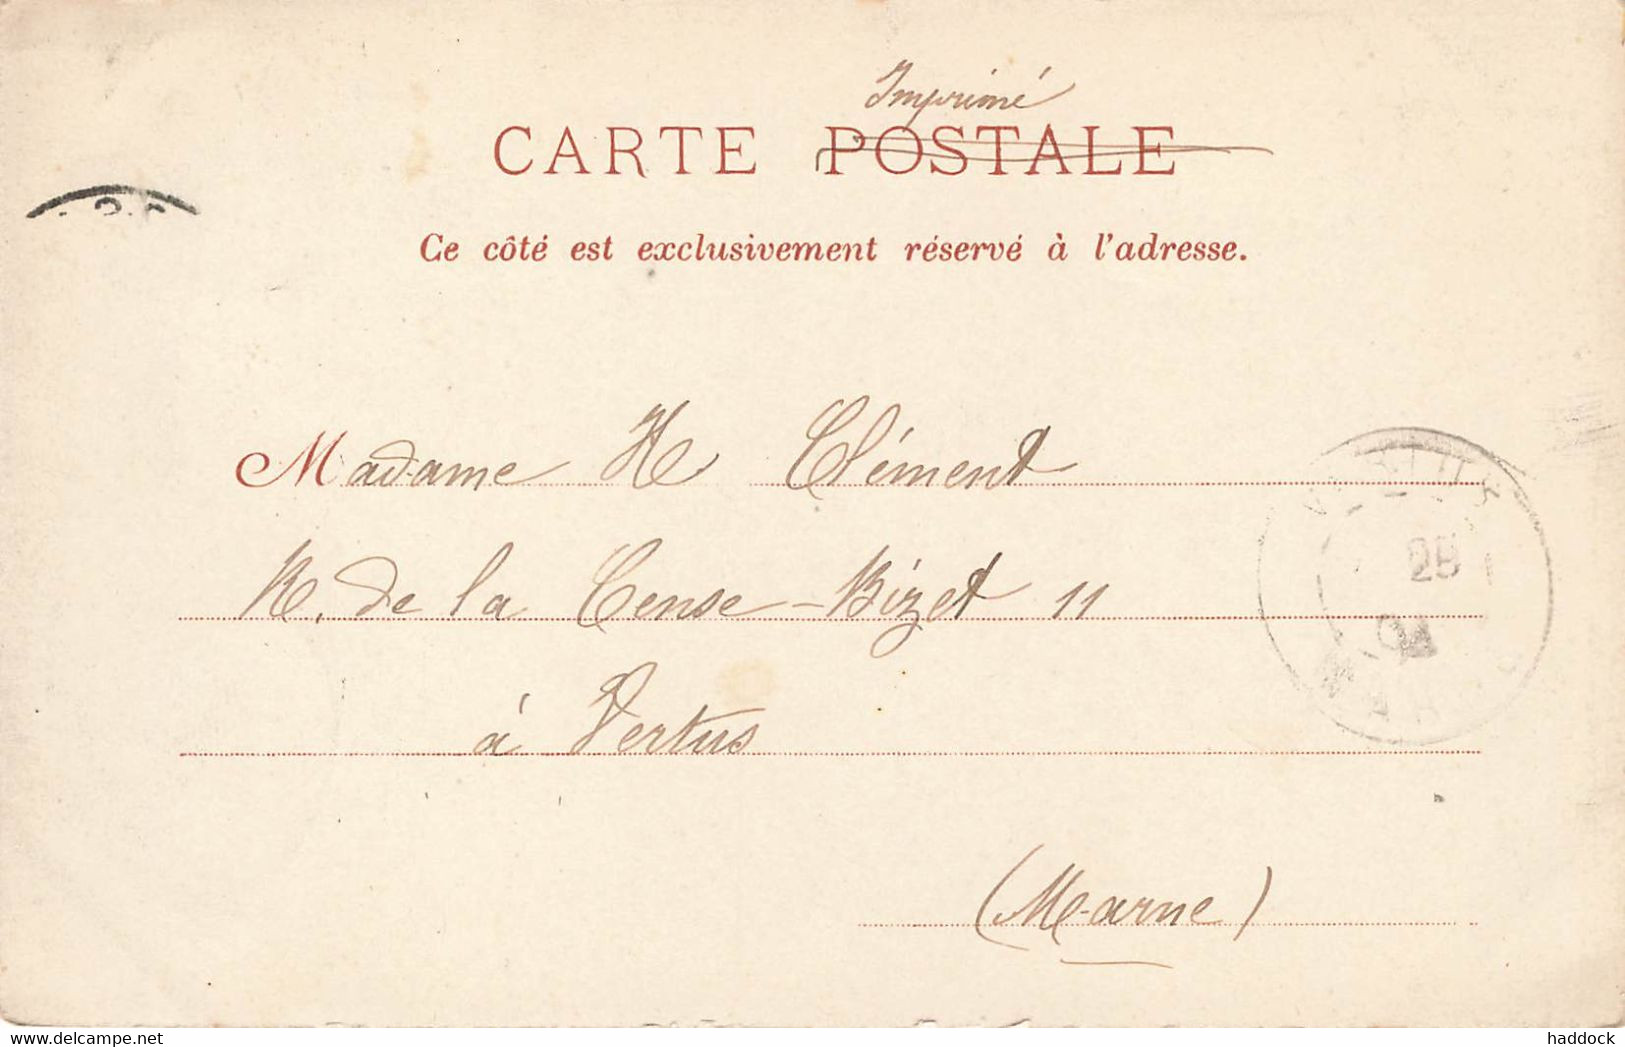 Imprimé
CARTE POSTALE
Ce côté est exclusivement réservé à l'adresse.
Madame H Clément
R. de la Cense-Bizet 11
à Vertus
(Marne)
VERTUS
25
04
MARNE
website: delcampe.net
haddock